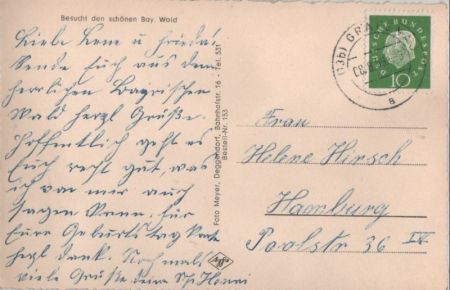 Besucht den schönen Bay. Wald
Liebe Lene u. Frieda!
Sende Euch aus dem
herrlichen Bayrischen
Wald herzl Grüße.
Hoffentlich geht es
Euch recht gut, was
ich von mir auch
sagen kann. für
Eure Geburtstagkarte
herzl dank. Nochmals
viele Grüße deine
Foto Meyer, Deggendorf, Bahnhofstr. 16 - Tel. 551
Bestell-Nr. 153
(13b) GRA
DEUTSCHE BUNDESPOST
10
a
Frau
Helene Hirsch
Hamburg
Poolstr 36 IV.